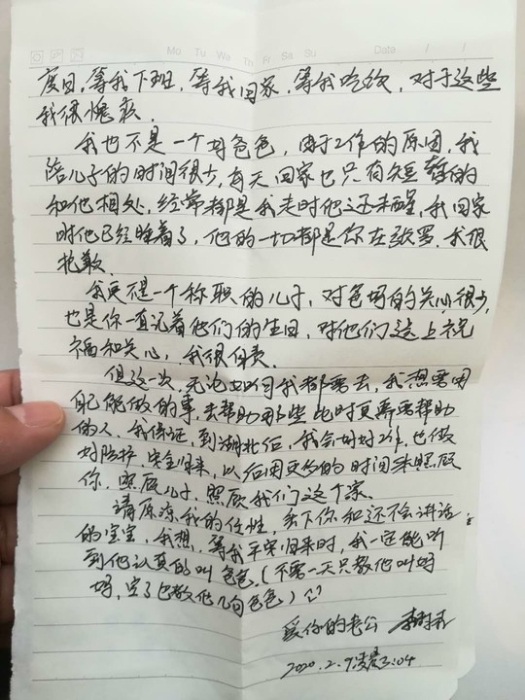 Mo Tu We Th Fr Sa Su Date / /
度日，等我下班，等我回家，等我吃饭，对于这些
我很愧疚。
我也不是一个好爸爸，由于工作的原因，我
陪儿子的时间很少，每天回家也只有短暂的
和他相处，经常都是我走时他还未醒，我回家
时他已经睡着了，他的一切都是你在张罗，我很
抱歉。
我更不是一个称职的儿子，对爸妈的关心很少，
也是你一直记着他们的生日，对他们送上祝
福和关心，我很自责。
但这一次，无论如何我都要去，我想要用
自己能做的事，去帮助那些此时更需要帮助
的人，我保证，到湖北后，我会好好工作，也做
好防护，安全归来，以后用更多的时间来照顾
你，照顾儿子，照顾我们这个家。
请原凉我的任性，丢下你和还不会讲话
的宝宝，我想，等我平安归来时，我一定能听
到他认真的叫爸爸。（不要一天只教他叫妈
妈，空了也教他几句爸爸）
爱你的老公
2020.2.9凌晨3:04